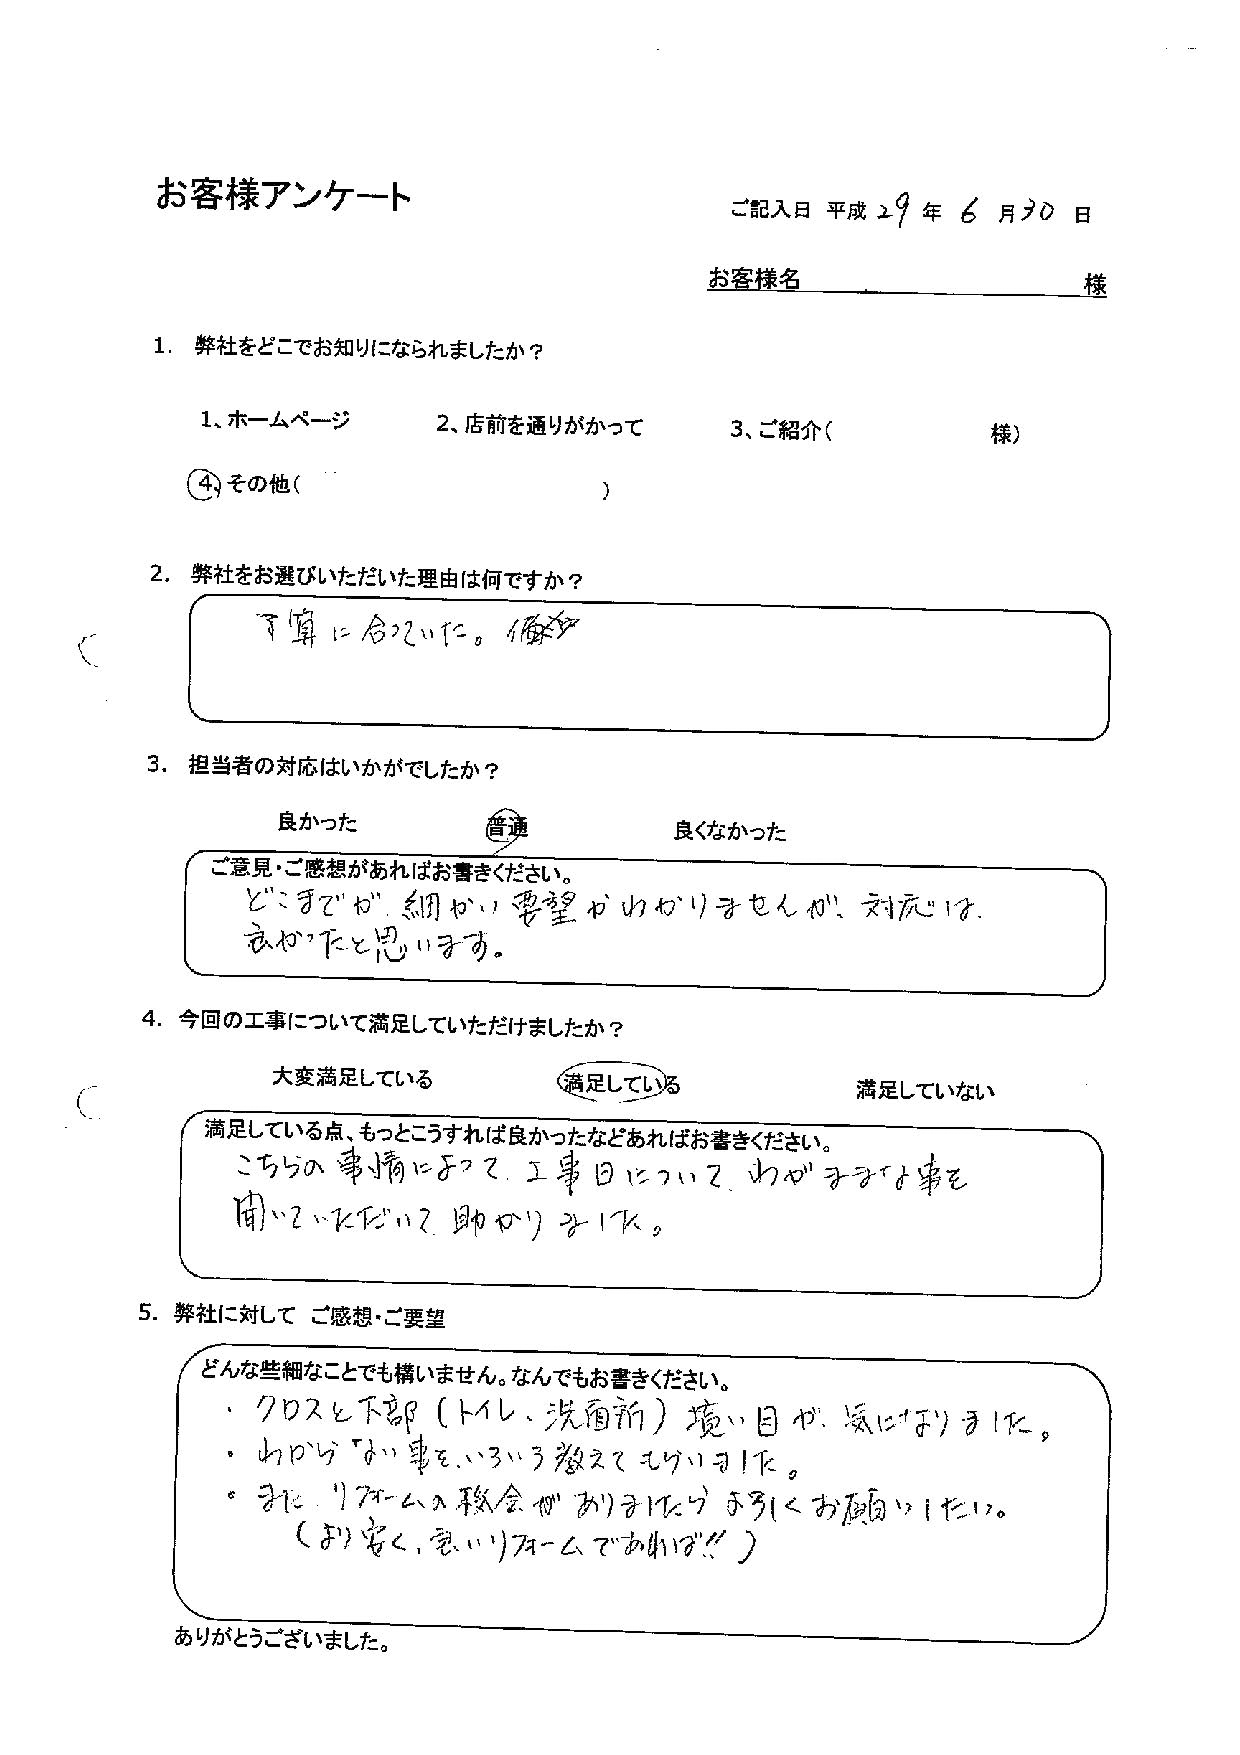 お客様アンケート
ご記入日 平成 29 年 6 月 30 日
お客様名 様
1. 弊社をどこでお知りになられましたか？
1、ホームページ 2、店前を通りがかって 3、ご紹介( 様)
4、その他( )
2. 弊社をお選びいただいた理由は何ですか？
予算に合っていた。
3. 担当者の対応はいかがでしたか？
良かった 普通 良くなかった
ご意見・ご感想があればお書きください。
どこまでが、細かい要望かわかりませんが、対応は、
良かったと思います。
4. 今回の工事について満足していただけましたか？
大変満足している 満足している 満足していない
満足している点、もっとこうすれば良かったなどあればお書きください。
こちらの事情によって、工事日について、わがままな事を
聞いていただいて、助かりました。
5. 弊社に対して ご感想・ご要望
どんな些細なことでも構いません。なんでもお書きください。
・クロスと下部(トイレ、洗面所)境い目が、気になりました。
・わからない事を、いろいろ教えてもらいました。
・また、リフォームの機会がありましたらよろしくお願いしたい。
(より安く、良いリフォームであれば!!)
ありがとうございました。